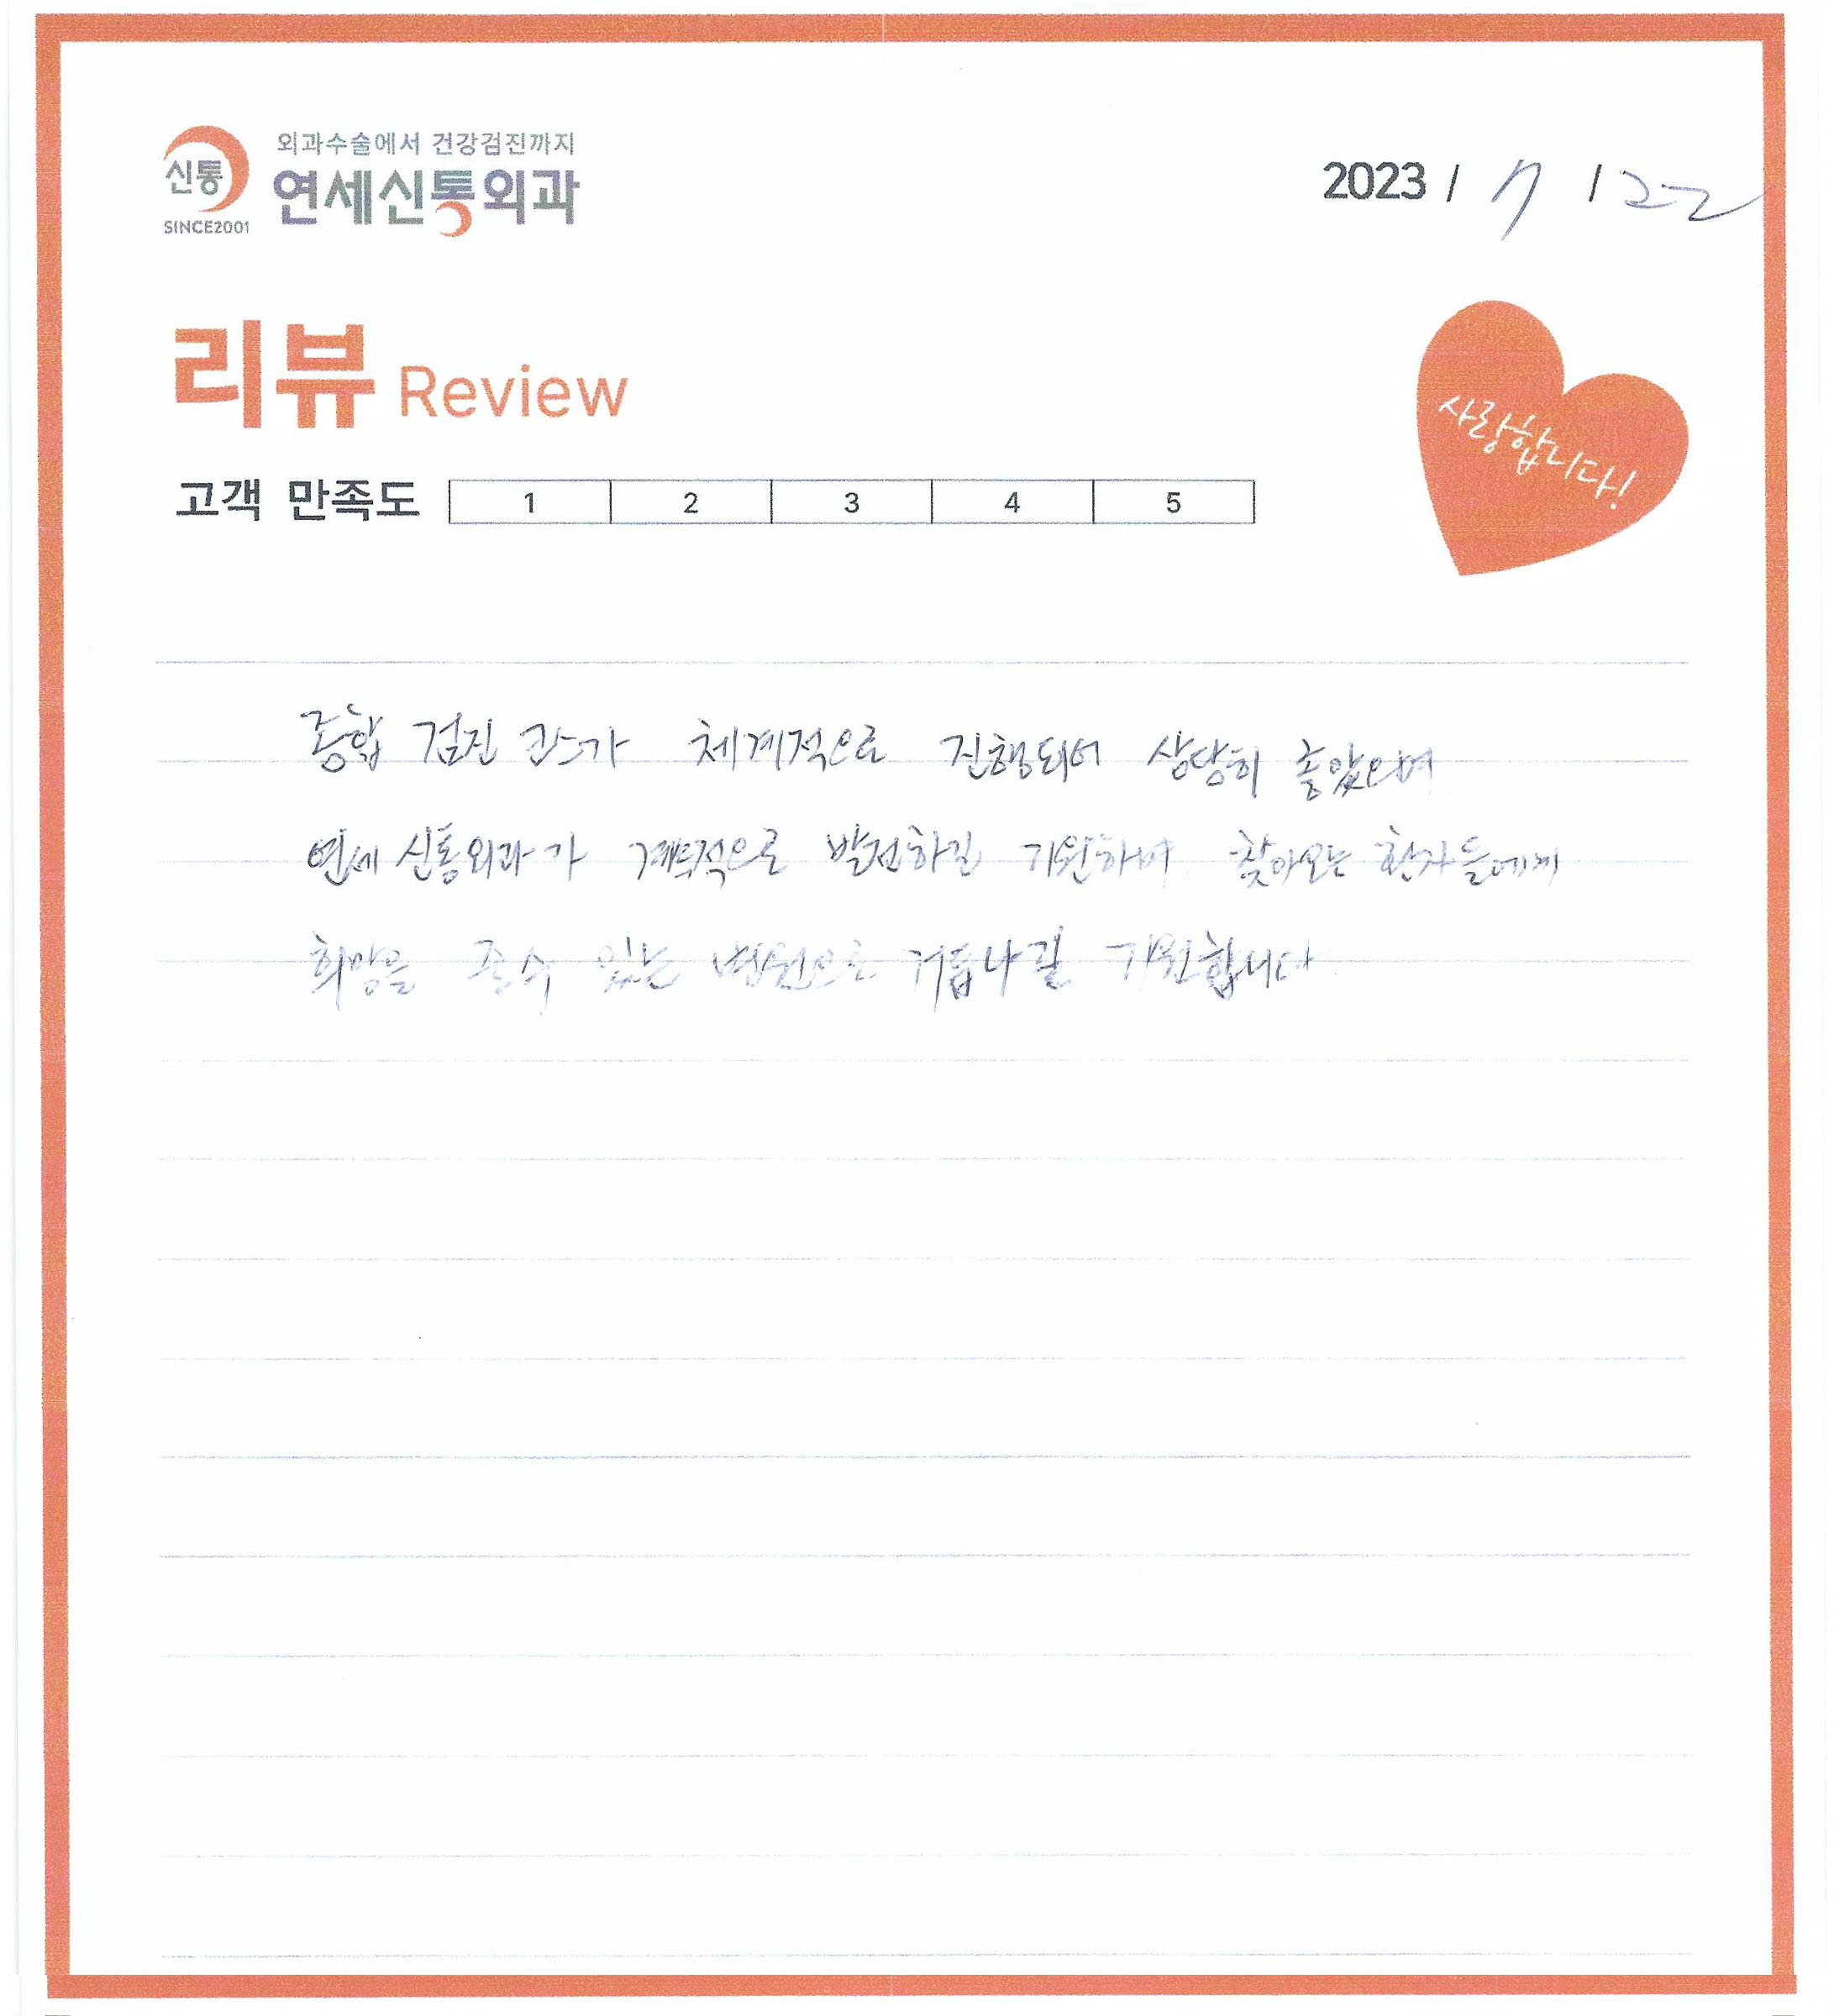 외과수술에서 건강검진까지
신통
연세신통외과
SINCE2001
2023 / 7 / 22
리뷰 Review
사랑합니다!
고객 만족도 1 2 3 4 5
종합 검진 코스가 체계적으로 진행되어 상당히 좋았으며
연세 신통외과가 계속적으로 발전하길 기원하며 찾아오는 환자들에게
희망을 줄수 있는 병원으로 거듭나길 기원합니다